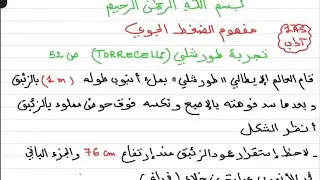 بسم الله الرحمن الرحيم
مفهوم الضغط الجوي
2AS
آداب
تجربة طورشلي (TORRECELLI) ص 52
قام العالم الإيطالي "طورشلي" بملء أنبوب طوله (1 m) بالزئبق
و بعدما سد فوهته بالإصبع و نكسه فوق حوض مملوء بالزئبق
أنظر الشكل
- لاحظ إستقرار عمود الزئبق عند إرتفاع 76 cm والجزء الباقي